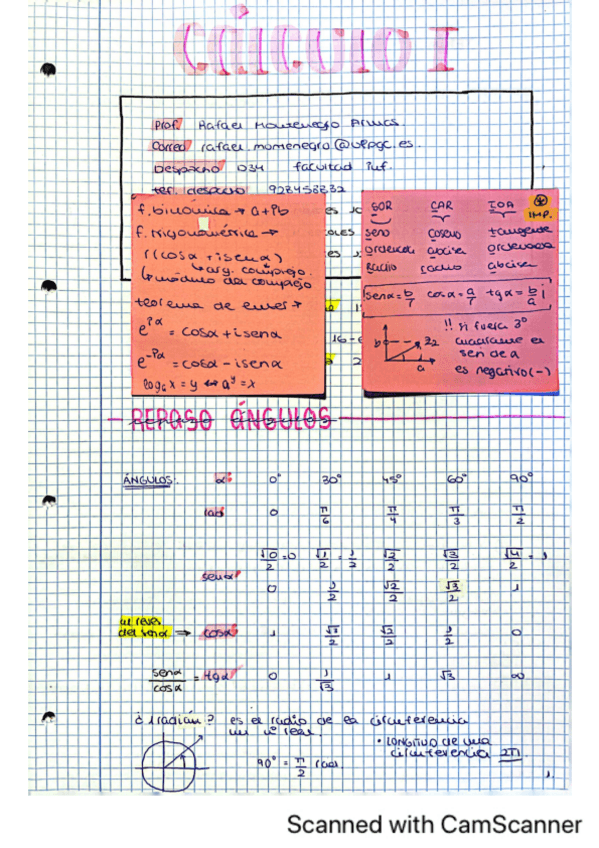 CÁLCULO I
Prof. Rafael Montenegro Armas.
Correo rafael.momenegro@ulpgc.es.
Despacho 034 facultad inf.
tef. despacho 928458832
f. binómica → a+ib
f. trigonométrica →
r(cosα + isenα)
↳ arg. complejo.
↳ módulo del complejo
teorema de euler →
e^iα = cosα + isenα
e^-iα = cosα - isenα
SOR CAR TOA IMP.
seno coseno tangente
ordenada abcisa ordenada
radio radio abcisa
senα = b/r cosα = a/r tgα = b/a
!! si fuera 3º
cuadrante el
sen de α
es negativo (-)
b z₂
a
REPASO ÁNGULOS
ÁNGULOS: α° 0° 30° 45° 60° 90°
rad 0 π/6 π/4 π/3 π/2
senα √0/2 = 0 √1/2 = 1/2 √2/2 √3/2 √4/2 = 1
0 1/2 √2/2 √3/2 1
al revés
del senα → cosα 1 √3/2 √2/2 1/2 0
senα/cosα = tgα 0 1/√3 1 √3 ∞
¿1 radián? es el radio de la circunferencia
un nº real.
• LONGITUD de una
circunferencia 2π
90° = π/2 (rad)
1.
Scanned with CamScanner